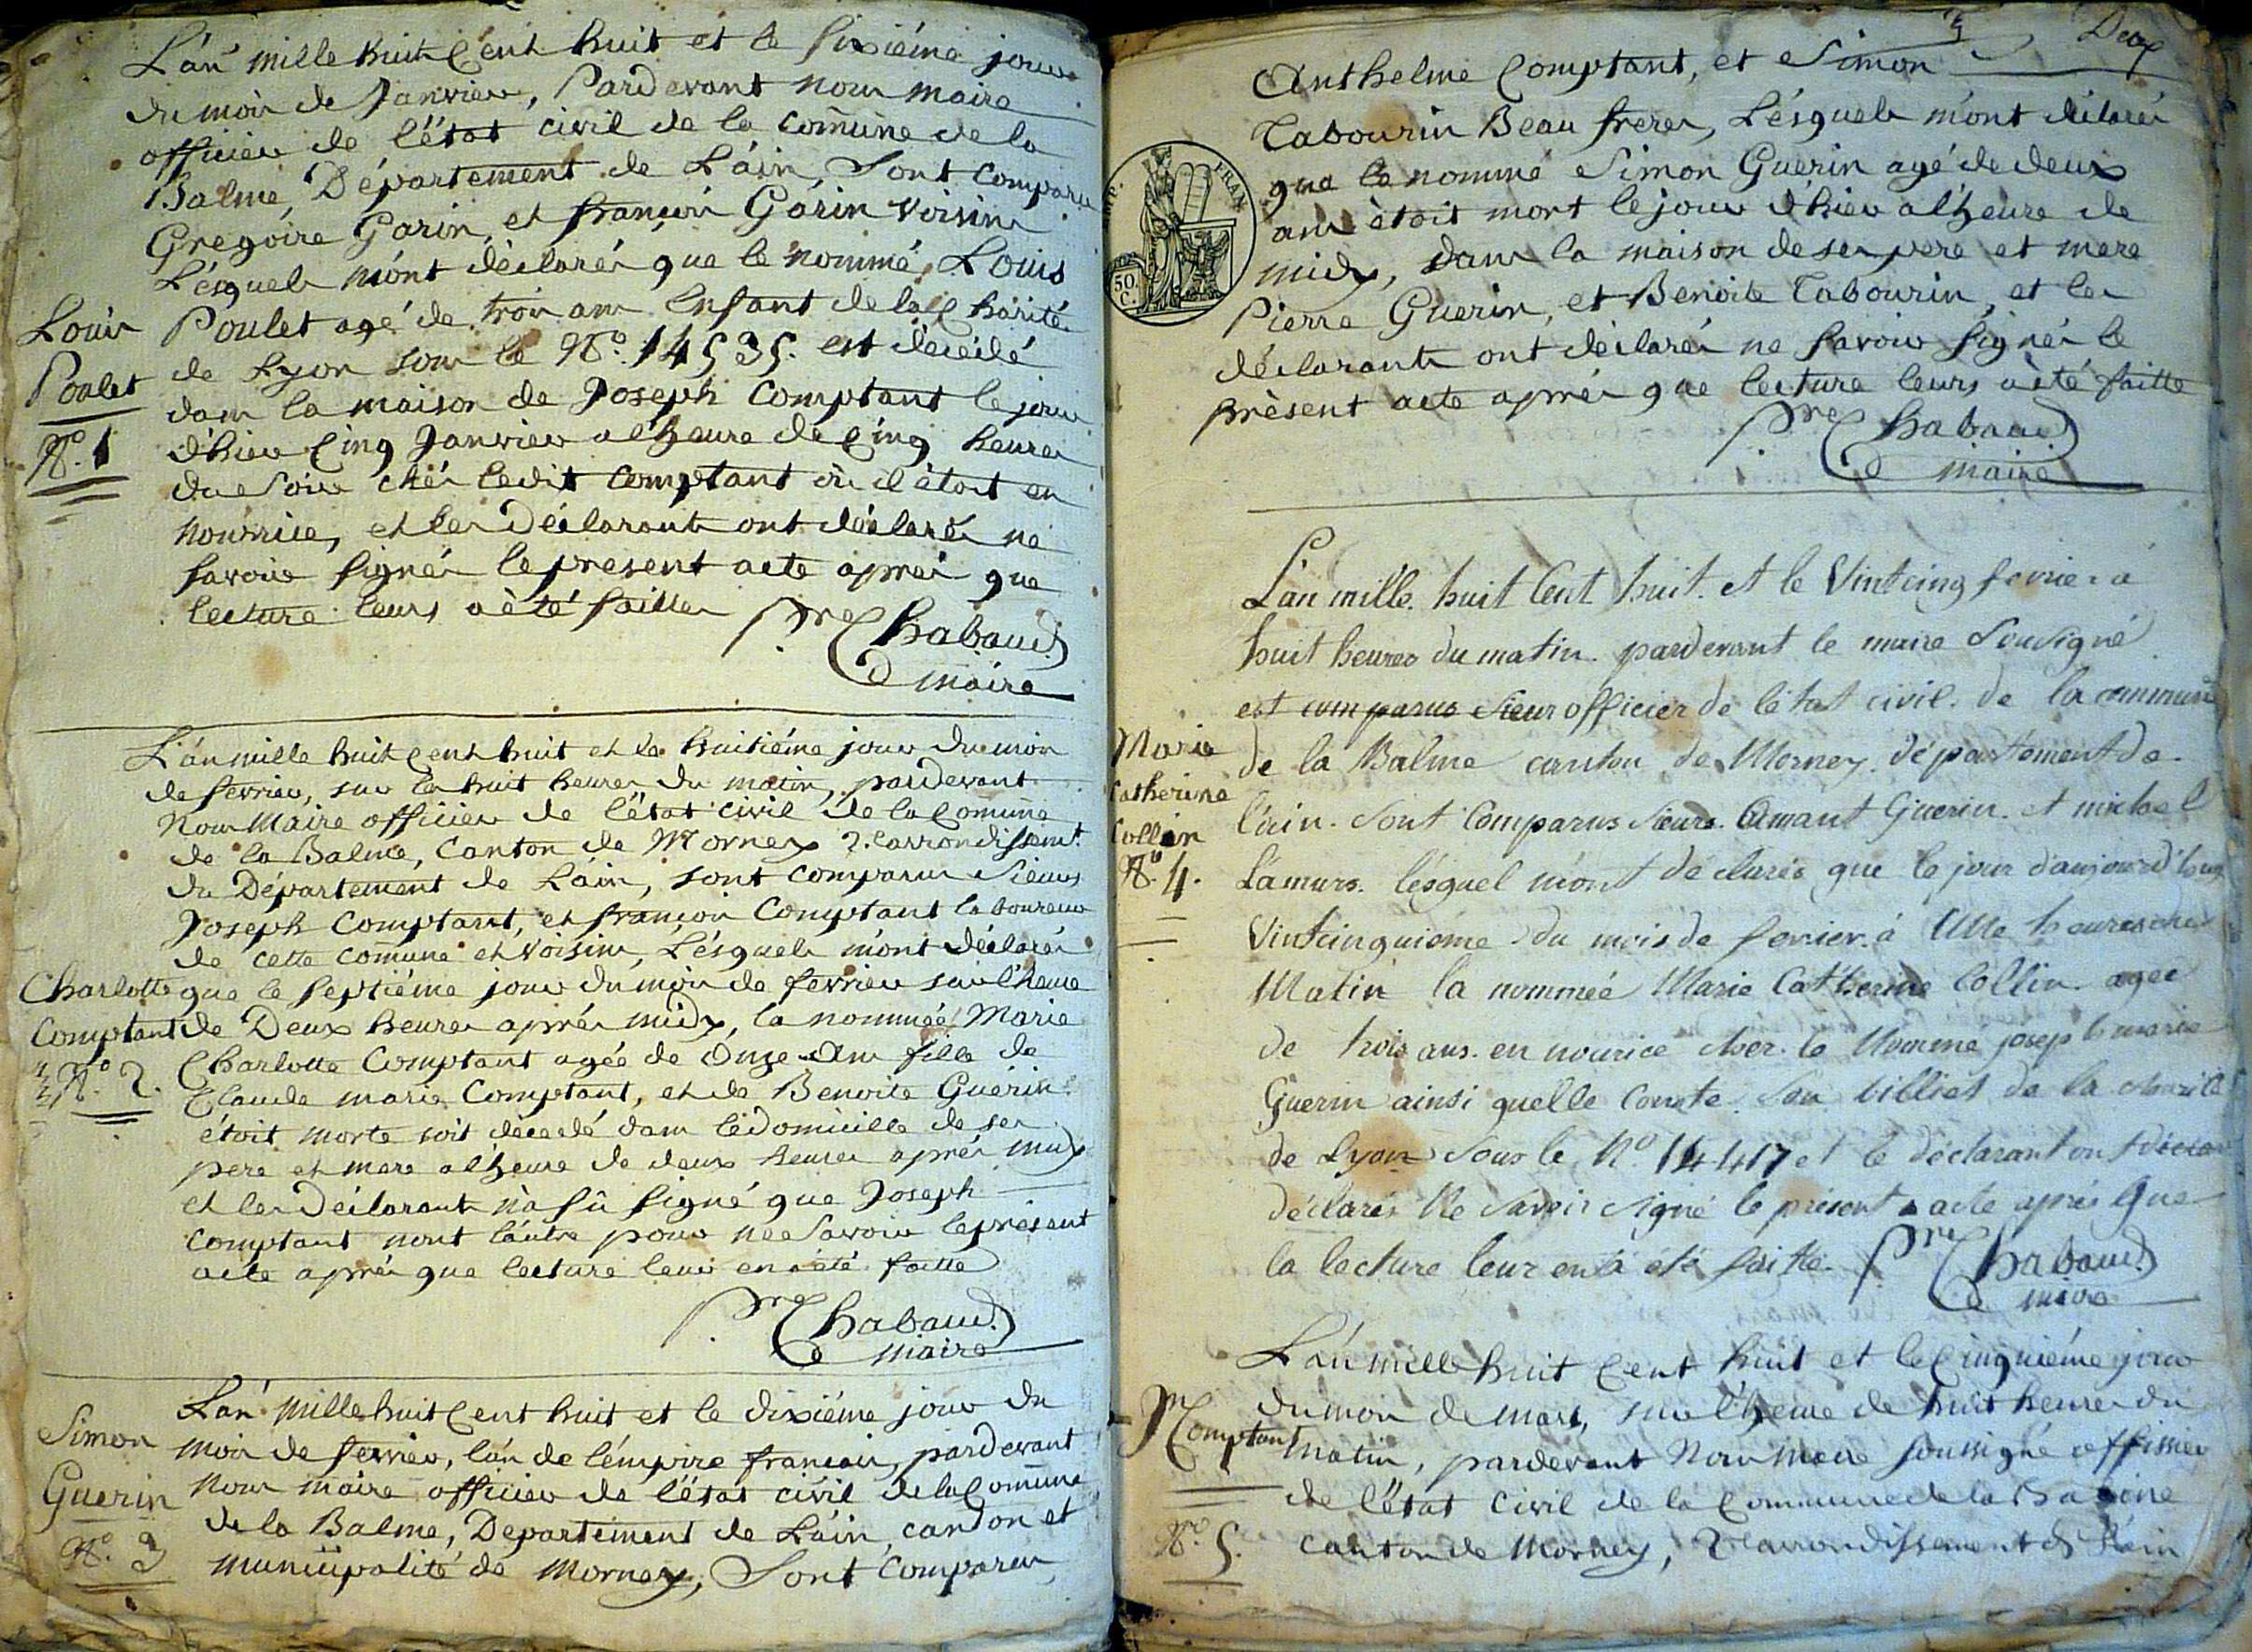 L'an mille huit Cent huit et le sixiéme jour
du mois de Janvier, Pardevant nous maire
officier de l'état civil de la comune de la
Balme, Département de L'ain, Sont comparu
Gregoire Garin, et françois Garin voisins
Lésquels m'ont déclarés que le nommé, Louis
Louis
Poulet
N°. 1
Poulet agé de trois ans Enfant de la Charité
de Lyon sous le N°. 14535. est décédé
dans la maison de Joseph Comptant le jour
d'hier Cinq Janvier a l'heure de Cinq heures
du Soir chés ledit Comptant où il étoit en
nourrice, et les Déclarants ont déclarés ne
savoir signér le present acte aprés que
lecture leurs a été faittes
Pre Chabaud
maire
L'an mille huit Cent huit et le huitiéme jour du mois
de fevrier, sur les huit heures du matin, pardevant
Nous Maire officier de l'état civil de la Comune
de la Balme, Canton de Mornex 2. arrondissemt.
du Département de L'ain, sont comparus Sieurs
Joseph Comptant, et françois Comptant laboureur
de cette comune et voisins, Lésquels m'ont déclarés
Charlotte
Comptant
N°. 2.
que le septiéme jour du mois de fevrier sur l'heure
de Deux heures aprés midy, la nommée Marie
Charlotte Comptant agée de Onze Ans fille de
Claude marie Comptant, et de Benoite Guérin
étoit morte soit décedé dans le domicille de ses
pere et mere a l'heure de deux heures aprés midy
et les Déclarants n'a sû signé que Joseph
Comptant nont l'autre pour ne Savoir le présent
acte aprés que lecture leur en a été faitte
Pre Chabaud
maire
Simon
Guerin
N°. 3
L'an mille huit Cent huit et le dixiéme jour du
mois de fevrier, l'an de l'émpire francais, pardevant
Nous maire officier de l'état civil de la Comune
de la Balme, Departement de L'ain, candon et
municipalité de Mornex, Sont Comparus
Deux
Anthelme Comptant, et Simon
Tabourin Beau freres, Lésquels m'ont déclarés
que le nommé Simon Guerin agé de deux
ans étoit mort le jour d'hier a l'heure de
midy, dans la maison de ses pere et mere
Pierre Guerin, et Benoite Tabourin, et les
déclarants ont déclarés ne savoir signér le
présent acte aprés que lecture leurs a été faitte
FRAN
50
C.
Pre Chabaud
maire
L'an mille. huit Cent huit. et le Vintcinq fevrier a
huit heures du matin. pardevant le maire Sousigné
est comparus Sieur officier de létat civil. de la commune
Marie
Catherine
Collin
N°. 4.
de la Balme canton de Mornex. département de
l'ain. sont Comparus Sieurs. Amant Guerin. et michel
Lamurs. lésquel m'ont déclarés que le jour d'aujourd'huy
Vintcinquiéme du mois de fevrier. à Une heures du
Matin la nommée Marie Catherine Collin. agée
de trois ans. en nourice cher. le Nommé joseph marie
Guerin ainsi quelle Conste. Son billiet de la charité
de Lyon Sous le N°. 14417 et le déclarant on
déclarés Ne Savoir signé le présent acte aprés que
la lecture leur en a été faitte. Pre Chabaud
maire
Comptant
N°. 5.
L'an mille huit Cent huit et le Cinquiéme jour
du mois de mars, sur l'heure de huit heures du
matin, pardevant Nous Maire soussigné offissier
de l'état Civil de la Commune de la Balme
Canton de Mornex, 2 arrondissement de L'ain